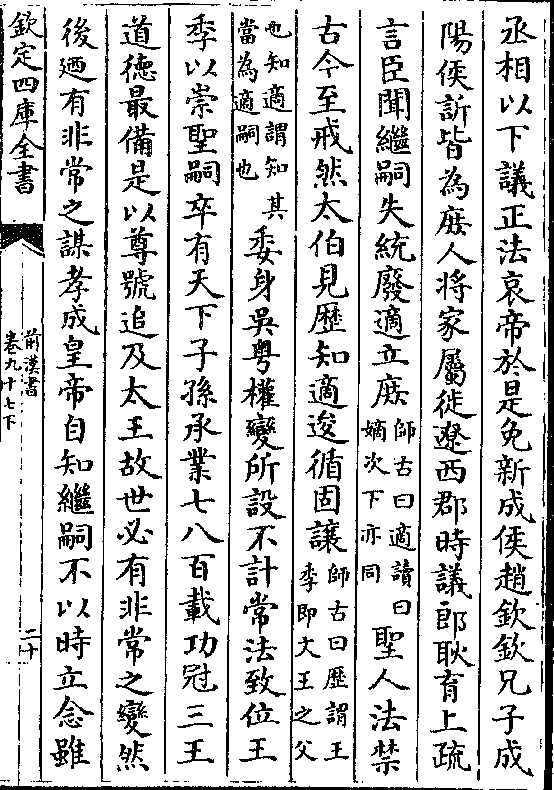 丞相以下議正法哀帝於是免新成侯趙欽欽兄子成
陽侯訢皆為庶人將家屬徙遼西郡時議郎耿育上疏
言臣聞繼嗣失統廢適立庶師古曰適讀曰嫡次下亦同聖人法禁
古今至戒然太伯見歴知適逡循固讓師古曰歴謂王季即文王之父
也知適謂知其當為適嗣也委身吳粵權變所設不計常法致位王
季以崇聖嗣卒有天下子孫承業七八百載功冠三王
道德最備是以尊號追及太王故世必有非常之變然
後迺有非常之謀孝成皇帝自知繼嗣不以時立念雖
欽定四庫全書
前漢書
卷九十七下
二十